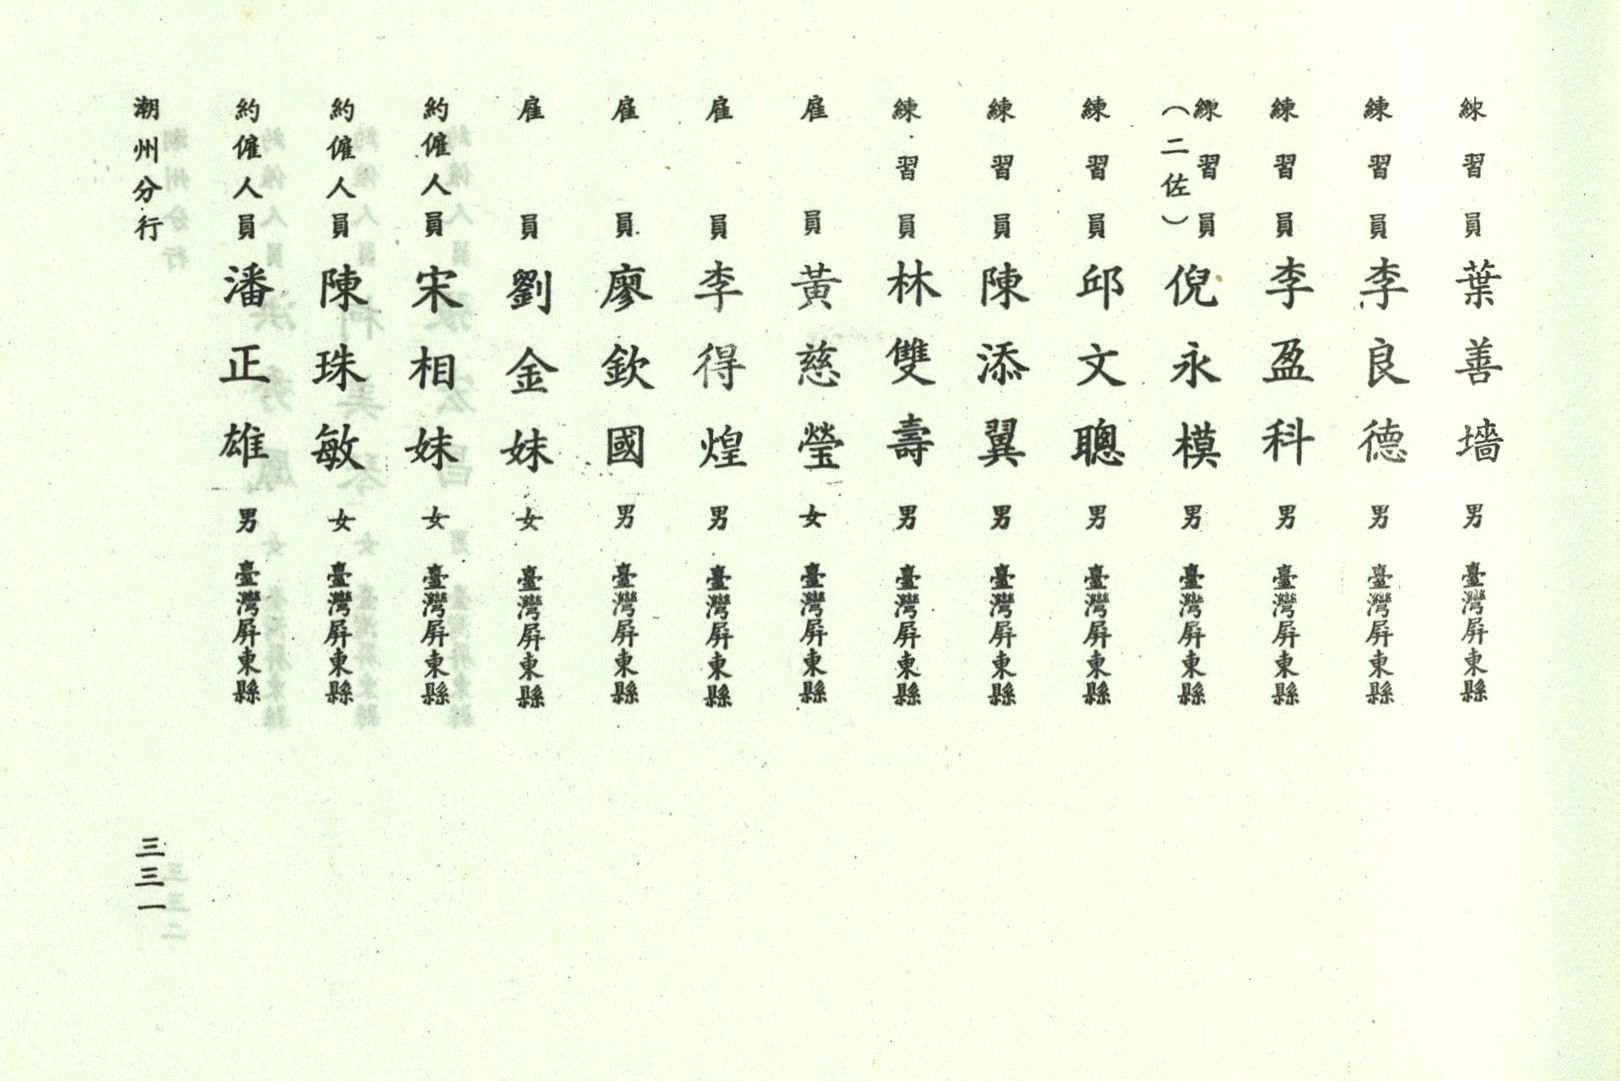 練習員 葉善墻 男 臺灣屏東縣
練習員 李良德 男 臺灣屏東縣
練習員 李盈科 男 臺灣屏東縣
練習員(二佐) 倪永模 男 臺灣屏東縣
練習員 邱文聰 男 臺灣屏東縣
練習員 陳添翼 男 臺灣屏東縣
練習員 林雙壽 男 臺灣屏東縣
雇員 黃慈瑩 女 臺灣屏東縣
雇員 李得煌 男 臺灣屏東縣
雇員 廖欽國 男 臺灣屏東縣
雇員 劉金妹 女 臺灣屏東縣
約僱人員 宋相妹 女 臺灣屏東縣
約僱人員 陳珠敏 女 臺灣屏東縣
約僱人員 潘正雄 男 臺灣屏東縣
潮州分行 三三一